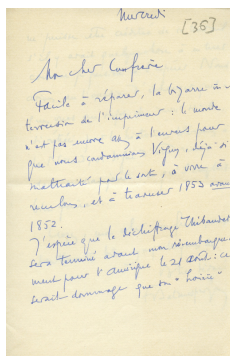 Mercredi
[36]
Mon cher Confrère
Facile à réparer, la bizarre in-
terversion de l'imprimeur : le monde
n'est pas encore assez à l'envers pour
que nous condamnions Vigny, déjà si
maltraité par le sort, à vivre à
reculons, et à trouver 1853 avant
1852.
J'espère que le déchiffrage Thibaudet
sera terminé avant mon réembarque-
ment pour l'Amérique le 21 août : ce
serait dommage que son